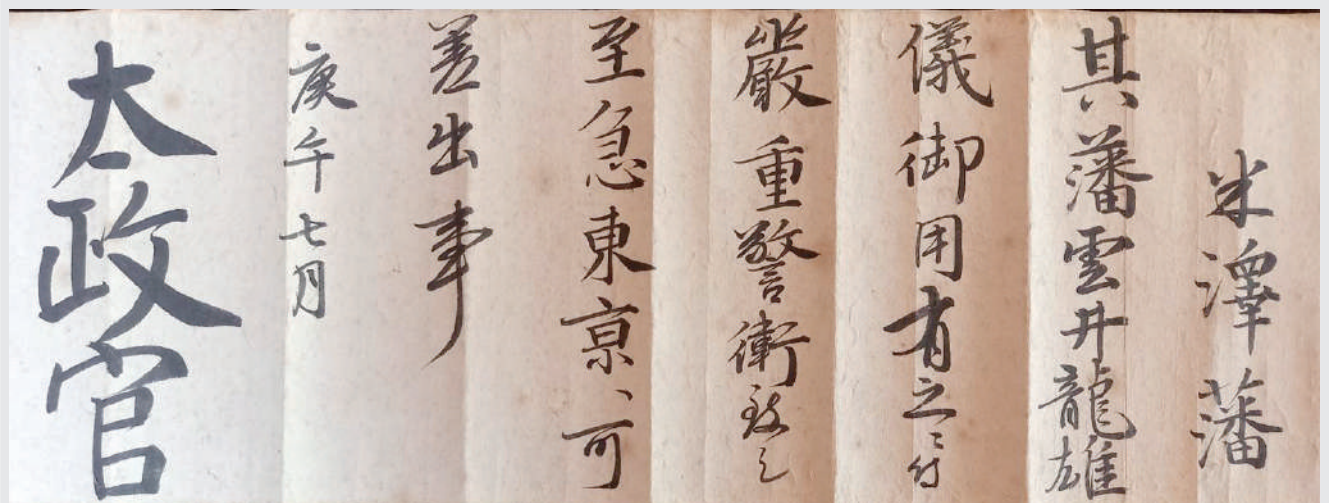 米澤藩
其藩雲井龍雄
儀御用有之ニ付
嚴重警衛致シ
至急東亰ヘ可
差出事
庚午七月
太政官